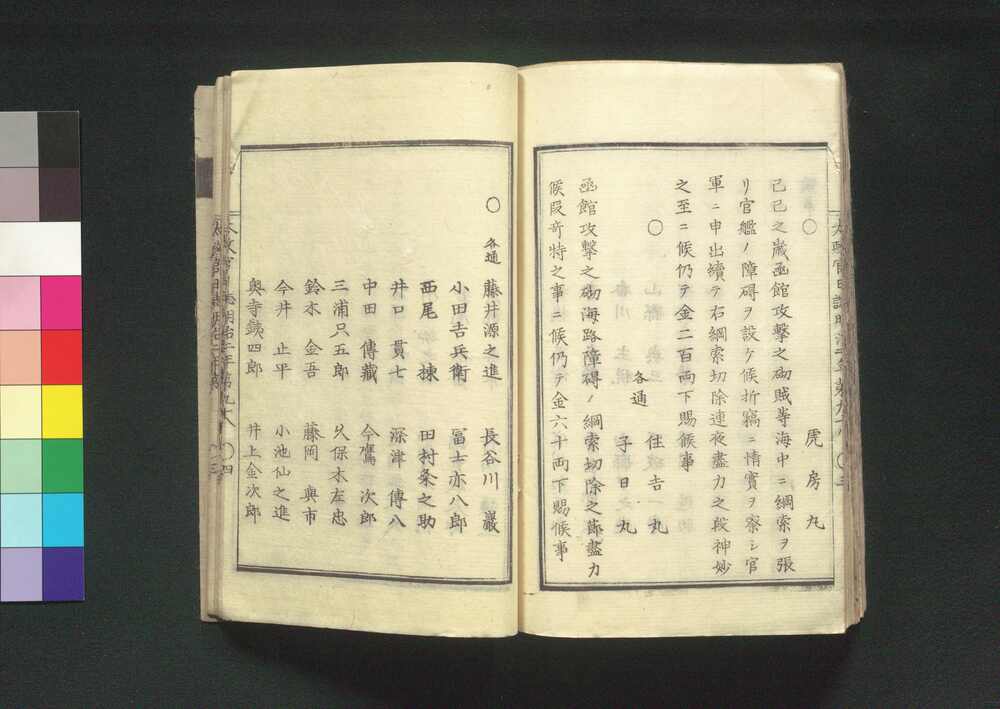 ○
虎房丸
己巳之歳函館攻撃之砌賊等海中ニ綱索ヲ張
リ官艦ノ障碍ヲ設ケ候折竊ニ情實ヲ察シ官
軍ニ申出續テ右綱索切除連夜盡力之段神妙
之至ニ候仍テ金二百両下賜候事
○
住吉丸
各通
子日丸
函館攻撃之砌海路障碍ノ綱索切除之節盡力
候段奇特之事ニ候仍テ金六十両下賜候事
○
各通
藤井源之進 長谷川巖
小田吉兵衛 冨士亦八郎
西尾揀 田村粂之助
井口貫七 深津傳八
中田傳藏 今鷹次郎
三浦只五郎 久保木左忠
鈴木金吾 藤岡與市
今井止平 小池仙之進
奥寺銕四郎 井上金次郎